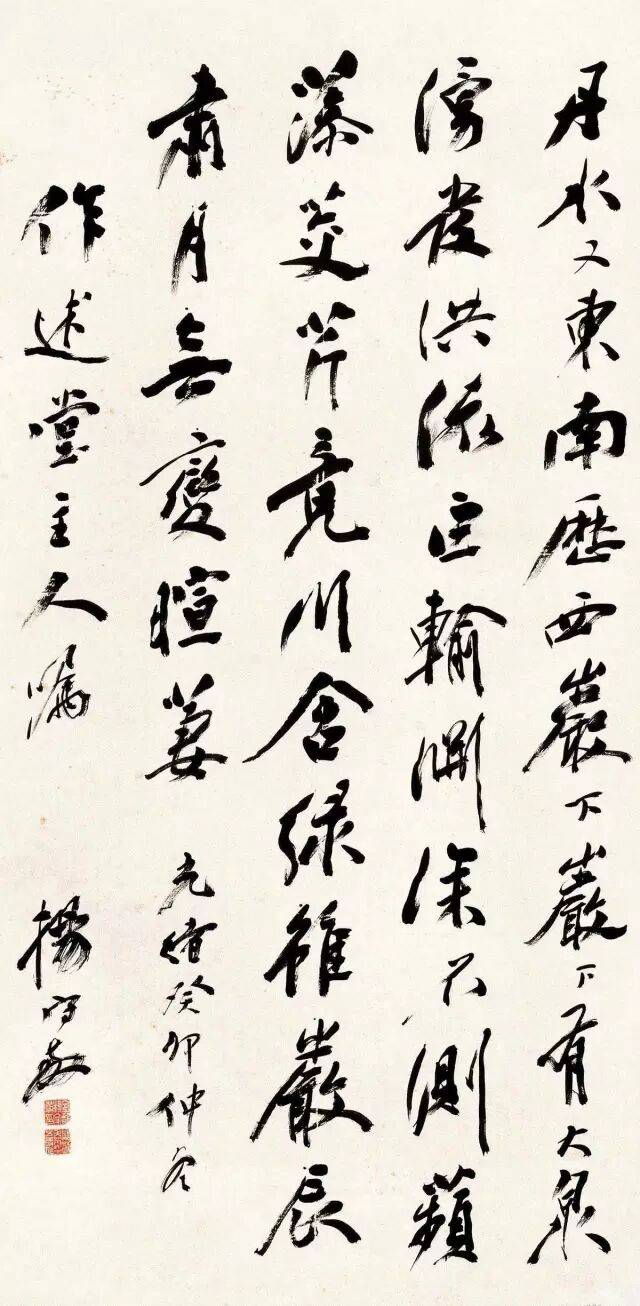 丹水又東南歷西巖下巖下有大泉
湧發洪流巨輸淵深不測蘋
藻茭芹竟川含綠雖巖辰
肅月無變暄萋 光緒癸卯仲冬
作述堂主人嘱 楊守敬